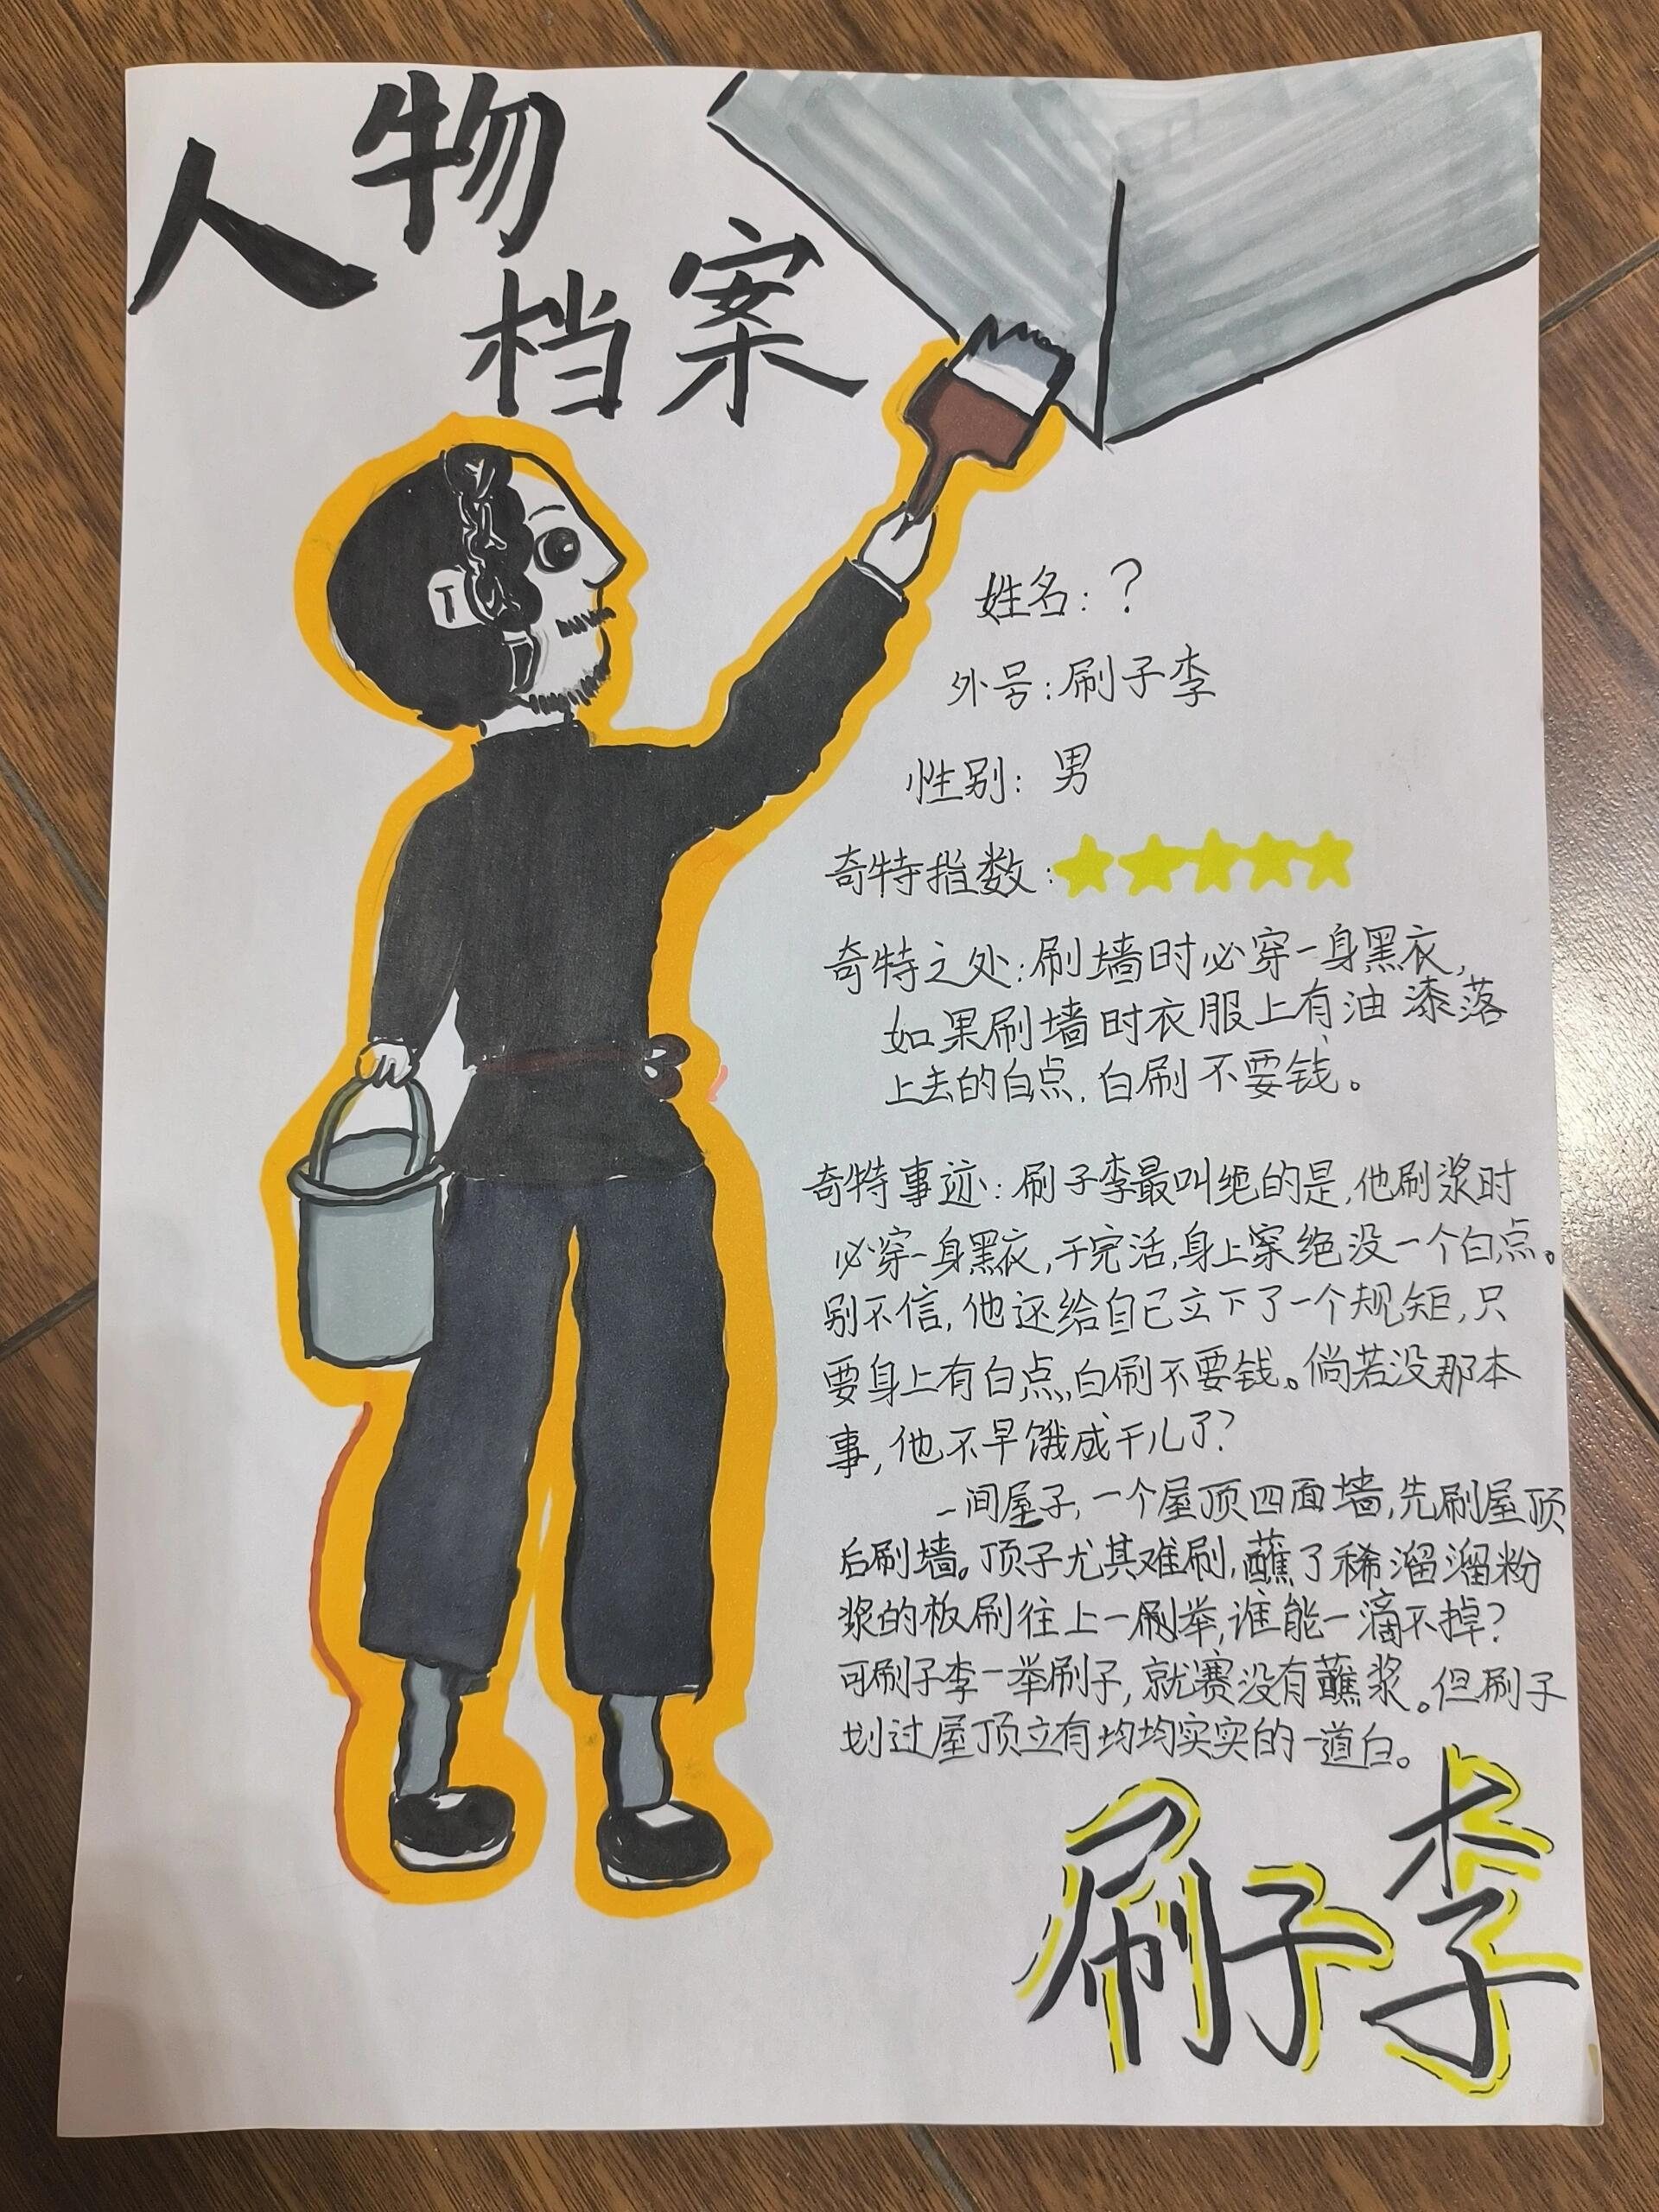 人物
档案
姓名：？
外号：刷子李
性别：男
奇特指数：
奇特之处：刷墙时必穿一身黑衣，
如果刷墙时衣服上有油漆落
上去的白点，白刷不要钱。
奇特事迹：刷子李最叫绝的是，他刷浆时
必穿一身黑衣，干完活，身上绝没一个白点。
别不信，他还给自己立下了一个规矩，只
要身上有白点，白刷不要钱。倘若没那本
事，他不早饿成干儿了？
一间屋子，一个屋顶四面墙，先刷屋顶
后刷墙。顶子尤其难刷，蘸了稀溜溜粉
浆的板刷往上一举，谁能一滴不掉？
可刷子李一举刷子，就赛没有蘸浆。但刷子
划过屋顶立有均均实实的一道白。
刷子李